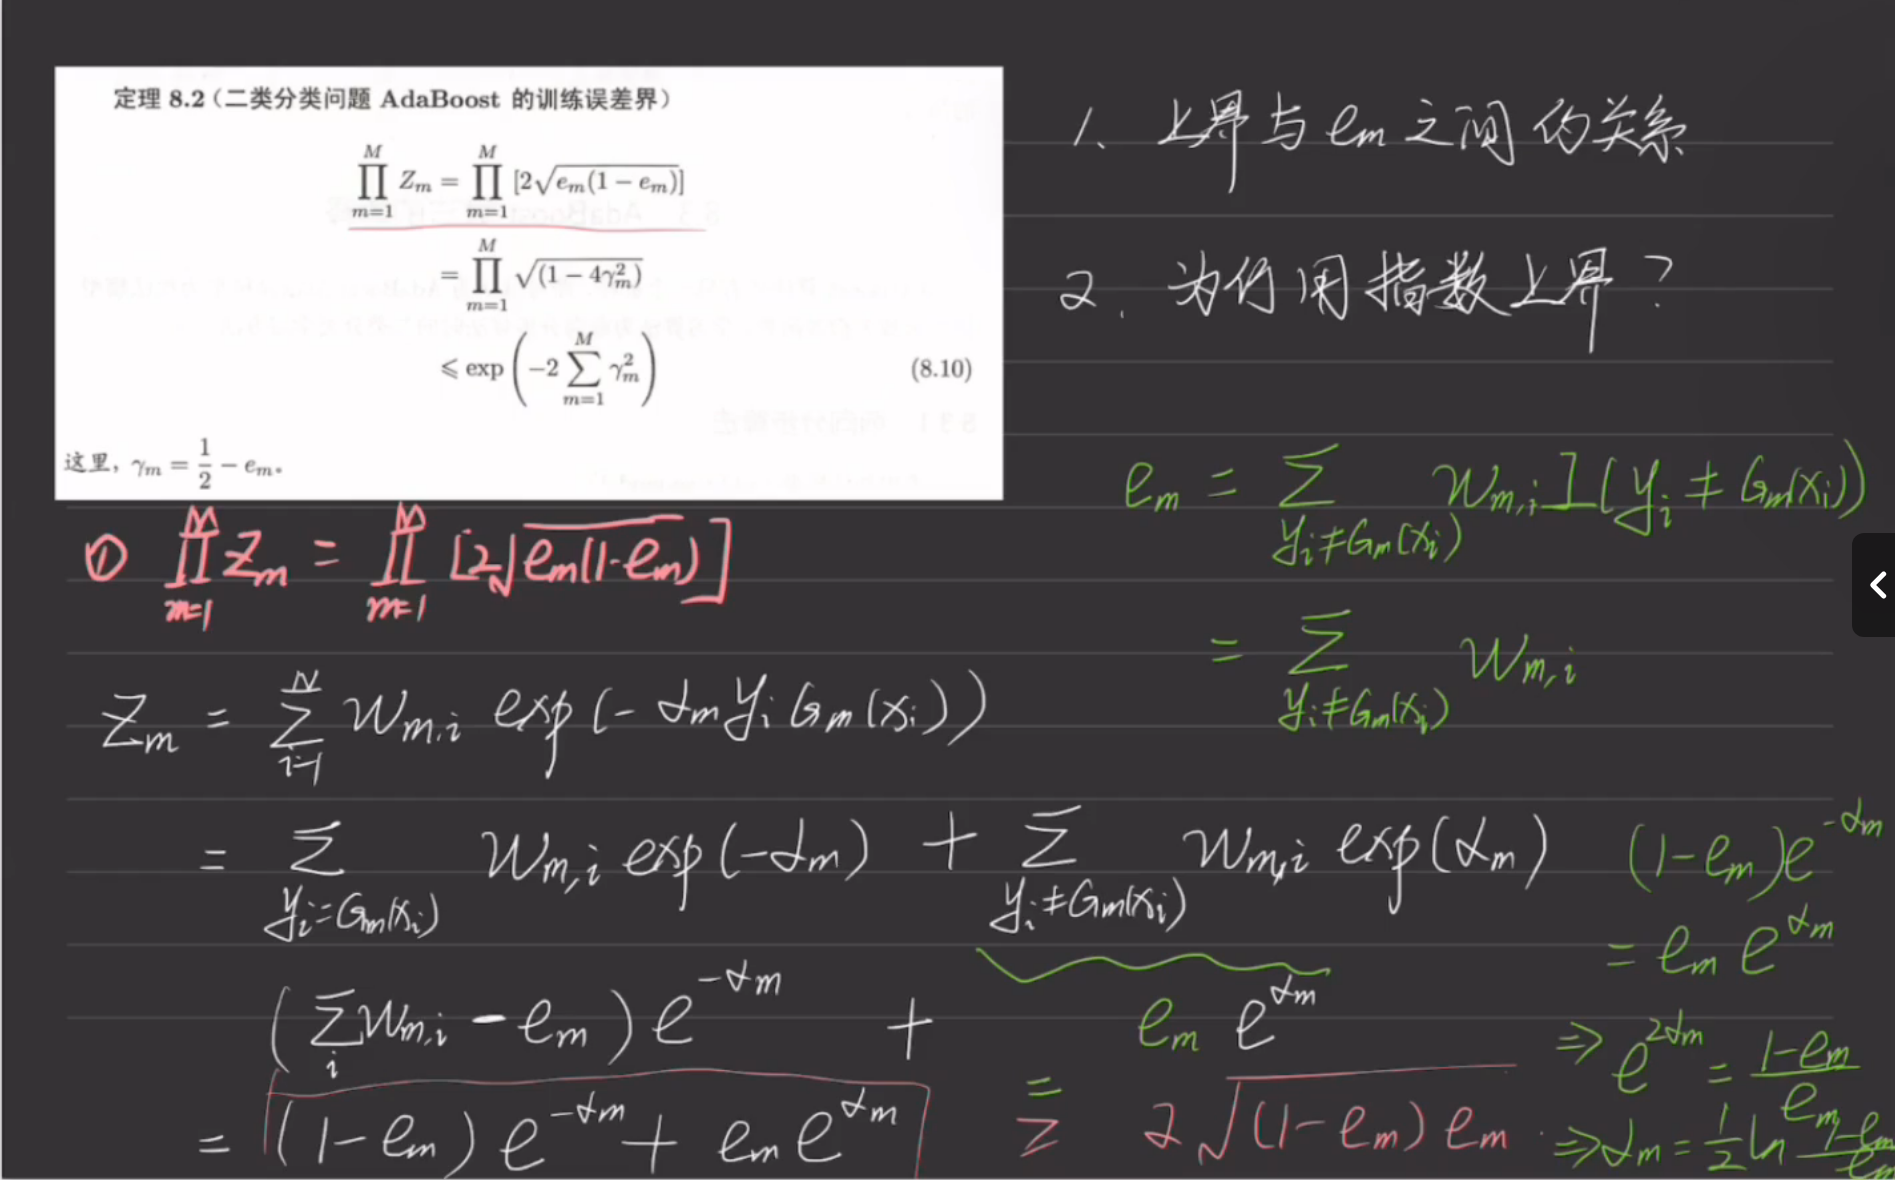 定理 8.2（二类分类问题 AdaBoost 的训练误差界）
∏_{m=1}^{M} Z_m = ∏_{m=1}^{M} [2√(e_m(1 − e_m))]
= ∏_{m=1}^{M} √(1 − 4γ_m^2)
⩽ exp(−2 ∑_{m=1}^{M} γ_m^2) (8.10)
这里，γ_m = 1/2 − e_m。
1、上界与 e_m 之间的关系
2. 为何用指数上界？
e_m = ∑_{y_i≠G_m(x_i)} w_{m,i} I(y_i ≠ G_m(x_i))
= ∑_{y_i≠G_m(x_i)} w_{m,i}
① ∏_{m=1}^{M} Z_m = ∏_{m=1}^{M} [2√(e_m(1-e_m))]
Z_m = ∑_{i=1}^{N} w_{m,i} exp(-α_m y_i G_m(x_i))
= ∑_{y_i=G_m(x_i)} w_{m,i} exp(-α_m) + ∑_{y_i≠G_m(x_i)} w_{m,i} exp(α_m)
(∑_i w_{m,i} - e_m) e^{-α_m} + e_m e^{α_m}
= (1-e_m) e^{-α_m} + e_m e^{α_m} ≥ = 2√((1-e_m) e_m)
(1-e_m) e^{-α_m}
= e_m e^{α_m}
⇒ e^{2α_m} = (1-e_m)/e_m
⇒ α_m = 1/2 ln (1-e_m)/e_m